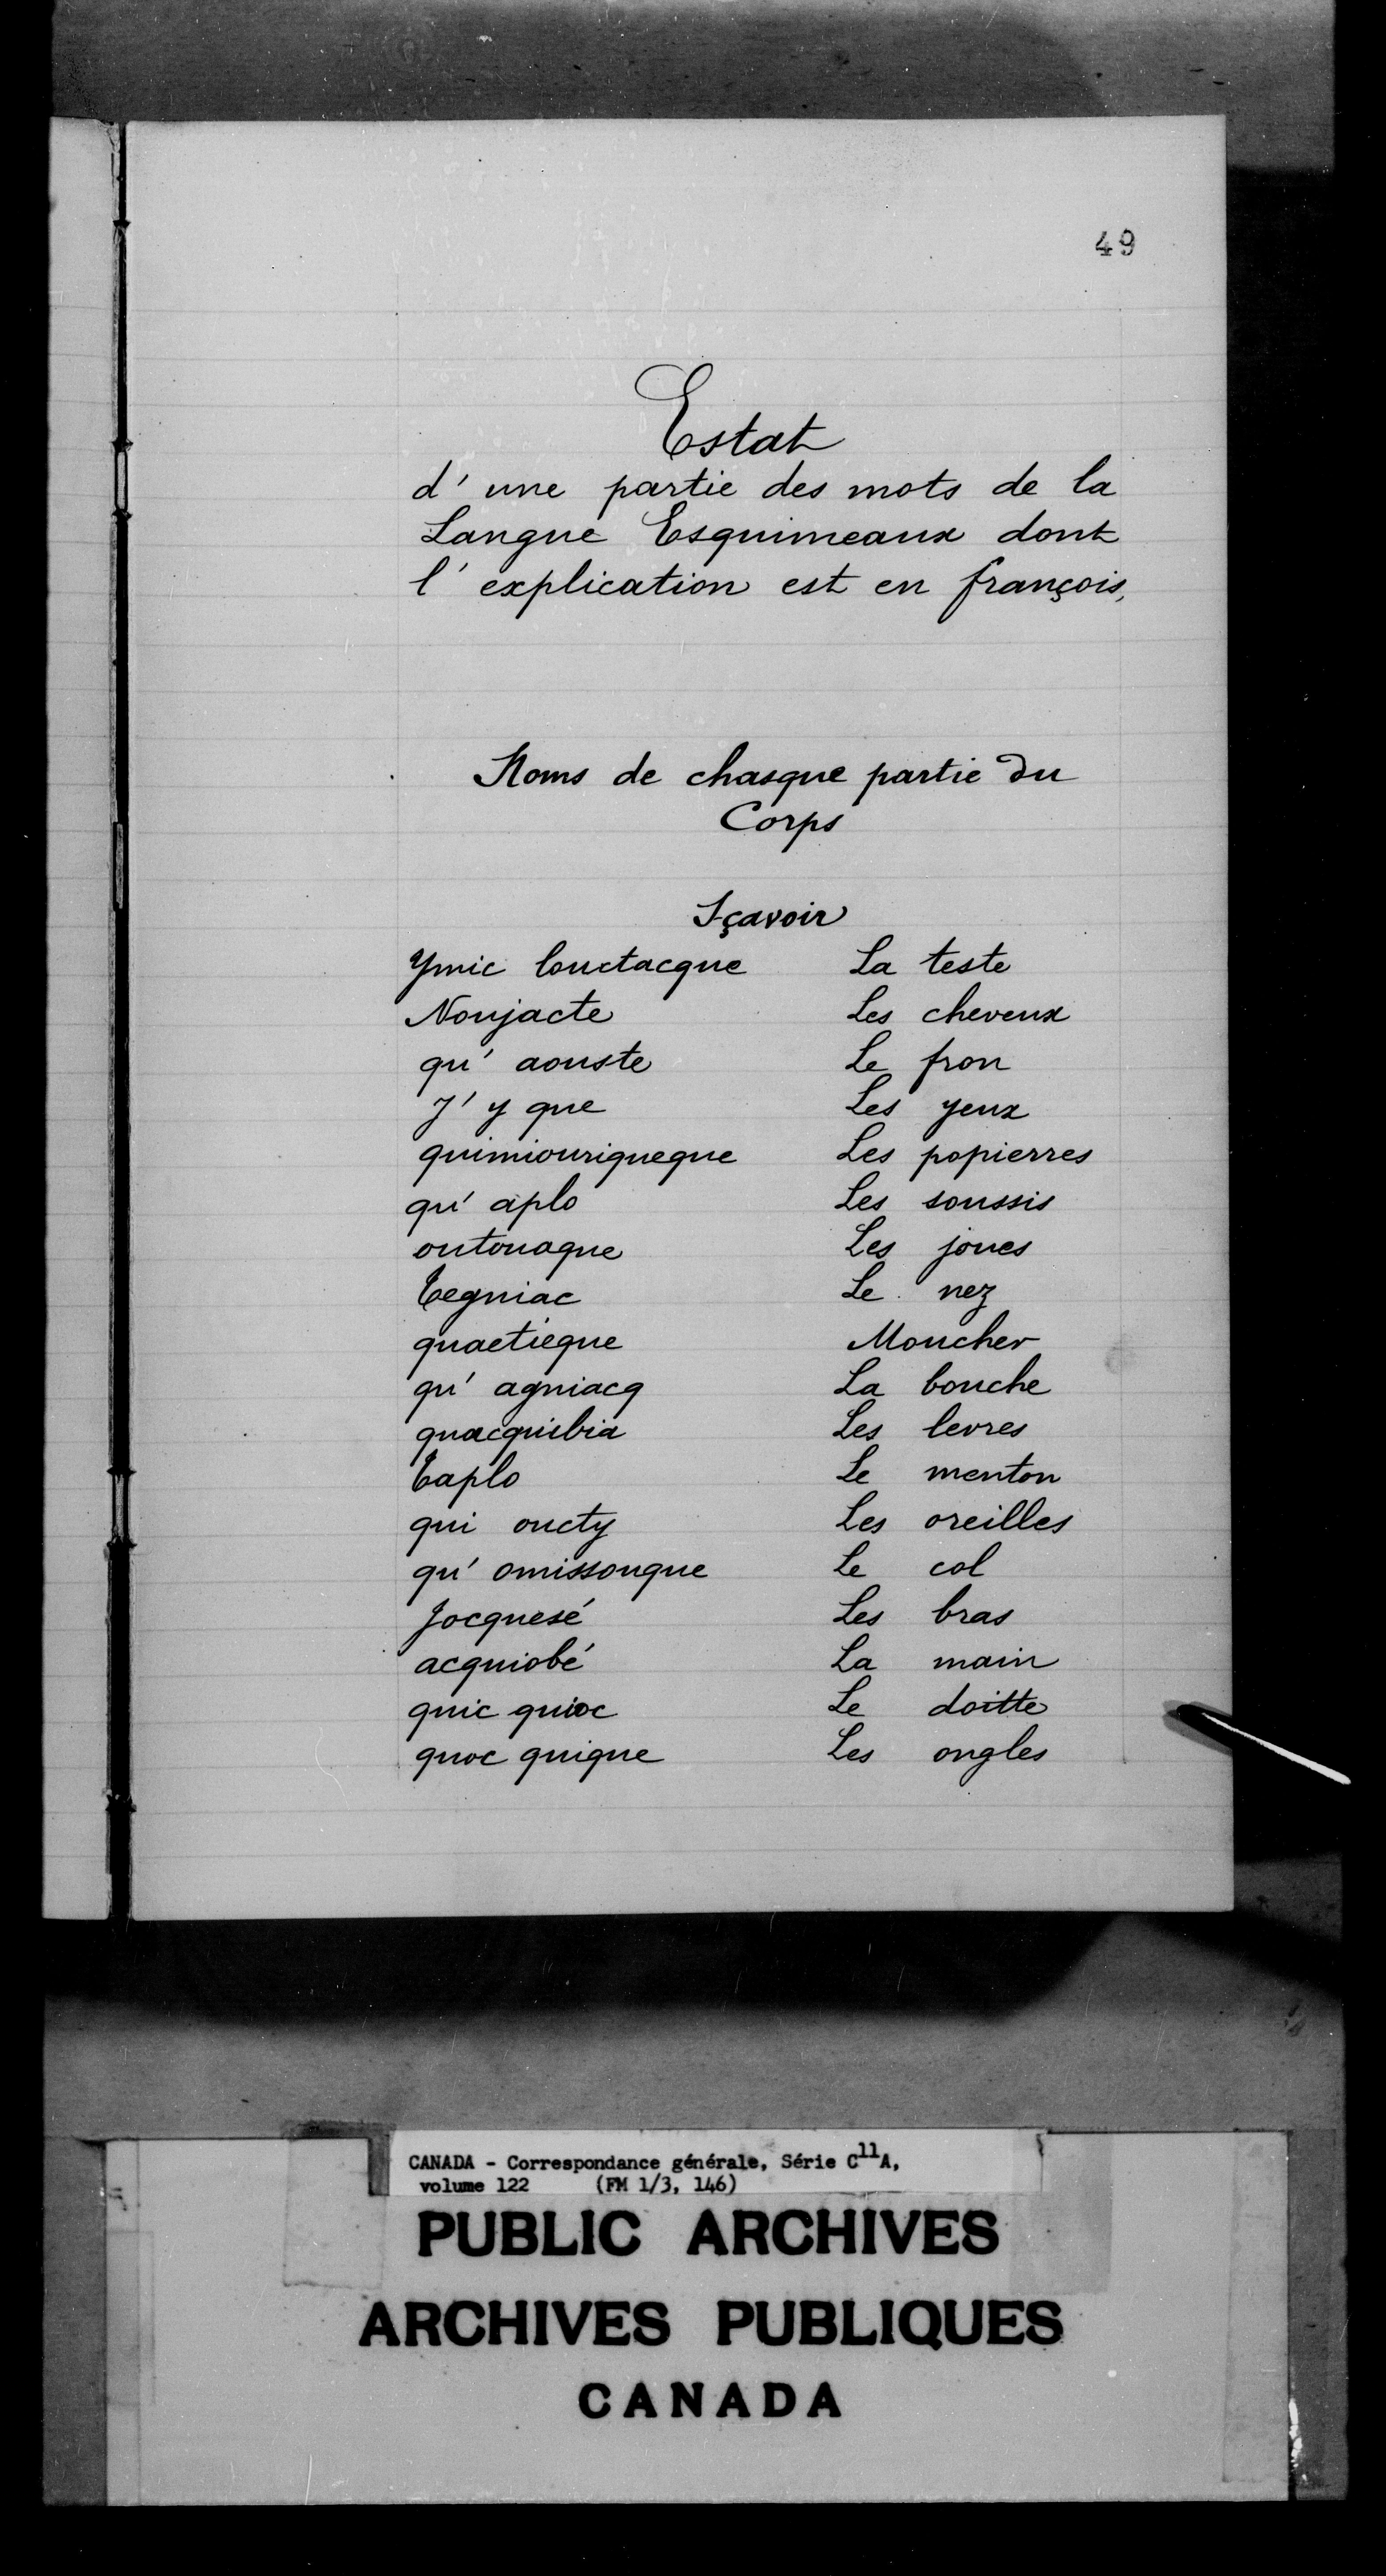 49
Estat
d' une partie des mots de la
Langue Esquimeaux dont
l' explication est en françois,
Noms de chasque partie du
Corps
Sçavoir
Ymic louctacque La teste
Noujacte Les cheveux
qu' aouste Le fron
J' y que Les yeux
quimiouriqueque Les popierres
qu' aplo Les soussis
outouaque Les joues
Cegniac Le nez
quactieque Moucher
qu' agniacq La bouche
quacquibia Les levres
Caplo Le menton
qui oucty Les oreilles
qu' omissouque Le col
Jocquesé Les bras
acquiobé La main
quic quioc Le doitte
quoc quique Les ongles
CANADA - Correspondance générale, Série C11A,
volume 122 (FM 1/3, 146)
PUBLIC ARCHIVES
ARCHIVES PUBLIQUES
CANADA